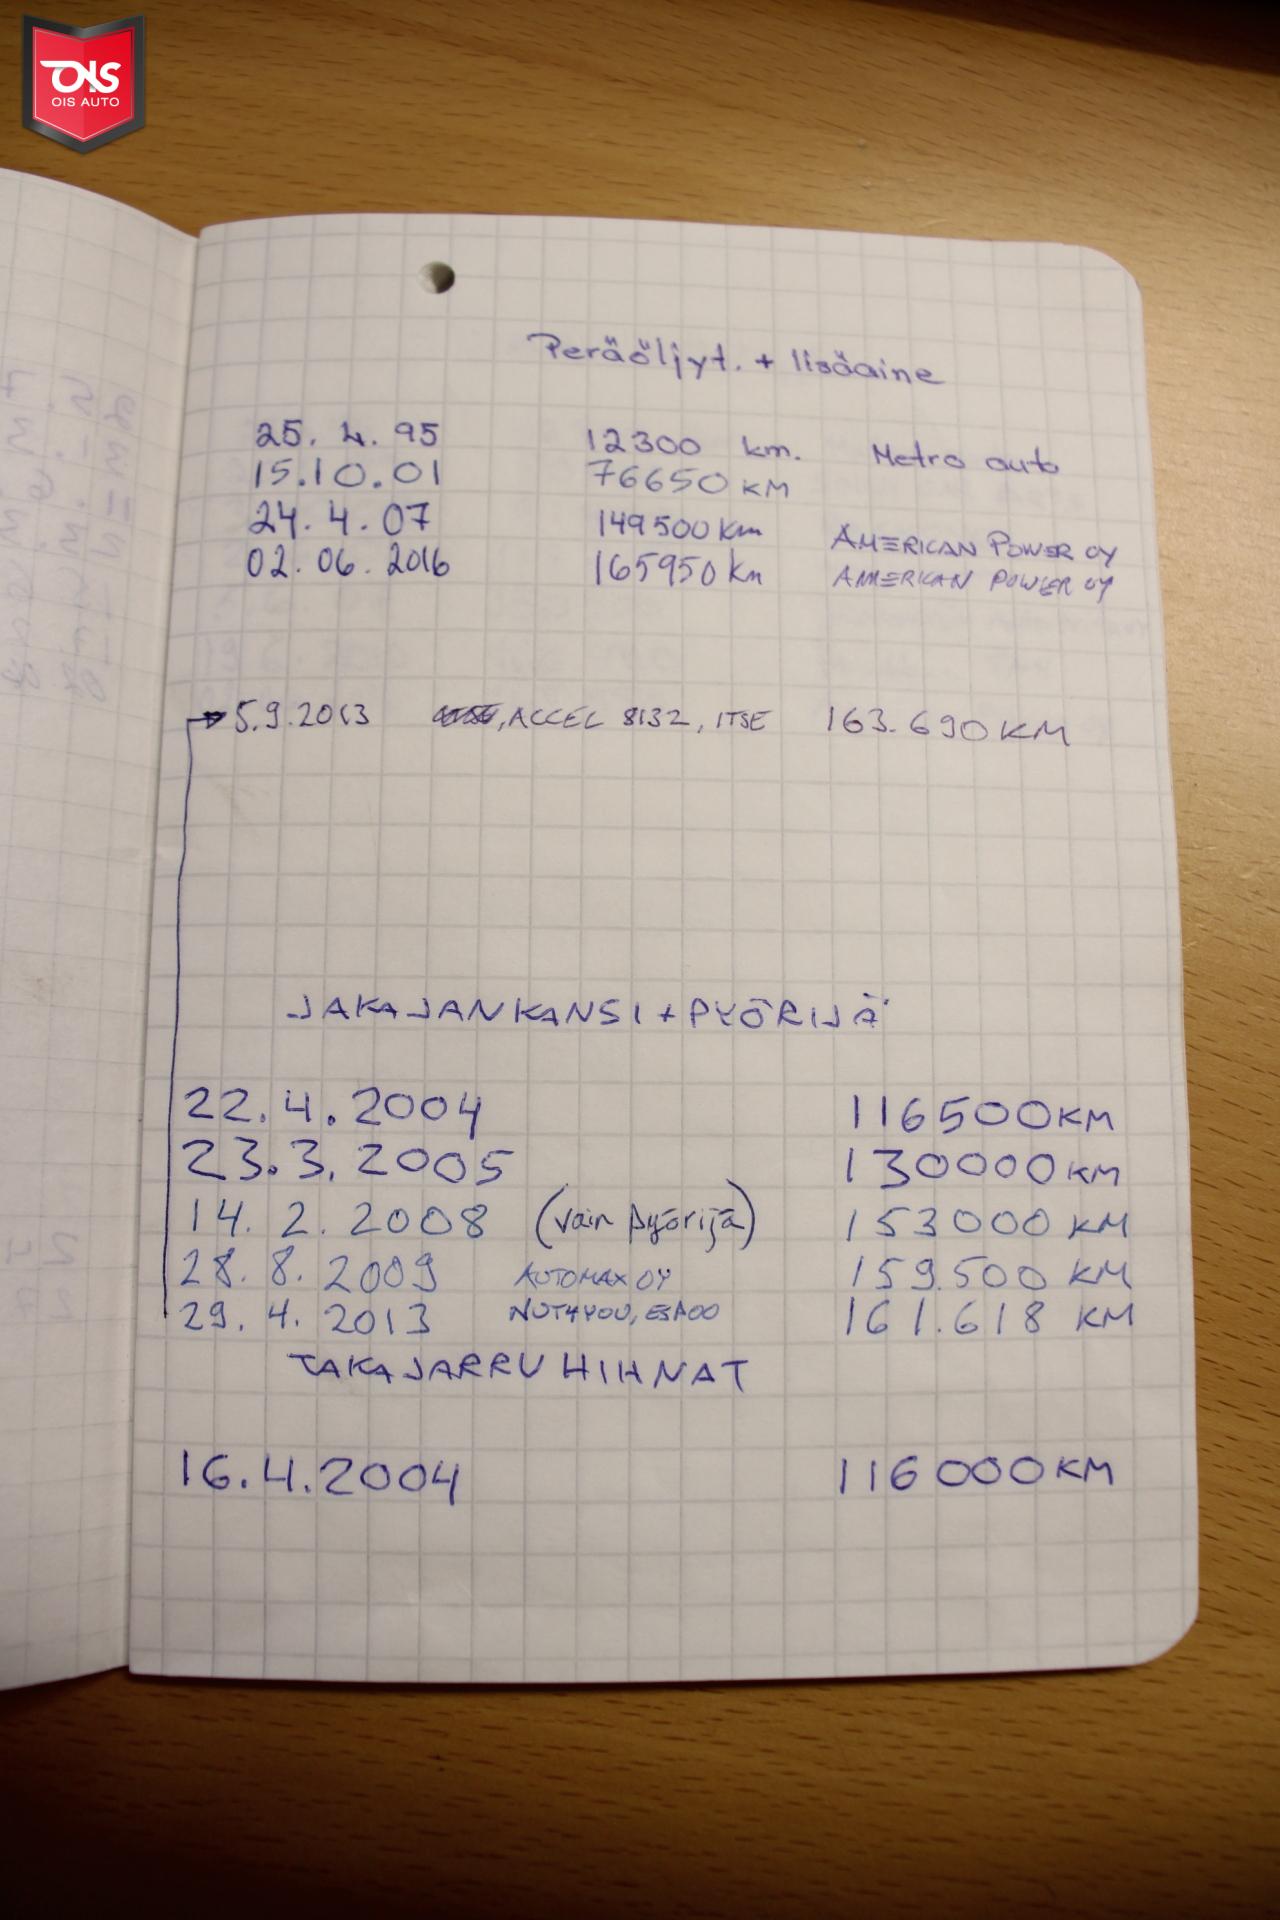 OIS
OIS AUTO
Peräöljyt. + lisäaine
25. 4. 95 12300 km. Metro auto
15.10.01 76650 KM
24. 4. 07 149500 km AMERICAN POWER OY
02. 06. 2016 165950 km AMERICAN POWER OY
5.9.2013 , ACCEL 8132, ITSE 163.690 KM
JAKAJANKANSI + PYÖRIJÄ
22.4.2004 116500 KM
23.3.2005 130000 KM
14. 2. 2008 (vain pyörijä) 153000 KM
28. 8. 2009 AUTOMAX OY 159.500 KM
29. 4. 2013 NUT4YOU, ESPOO 161.618 KM
TAKAJARRUHIHNAT
16.4.2004 116000 KM